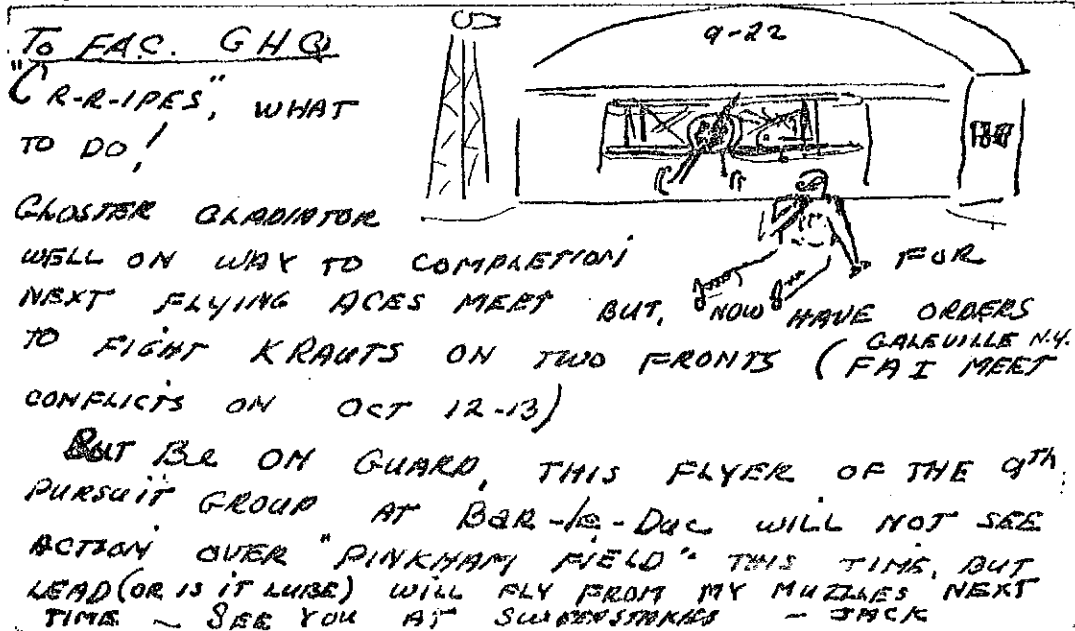 To FAC. GHQ
9-22
"CR-R-IPES", WHAT
TO DO!
GLOSTER GLADIATOR
WELL ON WAY TO COMPLETION FOR
NEXT FLYING ACES MEET BUT, NOW HAVE ORDERS
TO FIGHT KRAUTS ON TWO FRONTS (GALEVILLE N.Y. FAI MEET
CONFLICTS ON OCT 12-13)
BUT Be ON GUARD, THIS FLYER OF THE 9TH
PURSUIT GROUP AT BAR-le-Duc WILL NOT SEE
ACTION OVER "PINKHAM FIELD" THIS TIME, BUT
LEAD (OR IS IT LUBE) WILL FLY FROM MY MUZZLES NEXT
TIME ~ SEE YOU AT - JACK